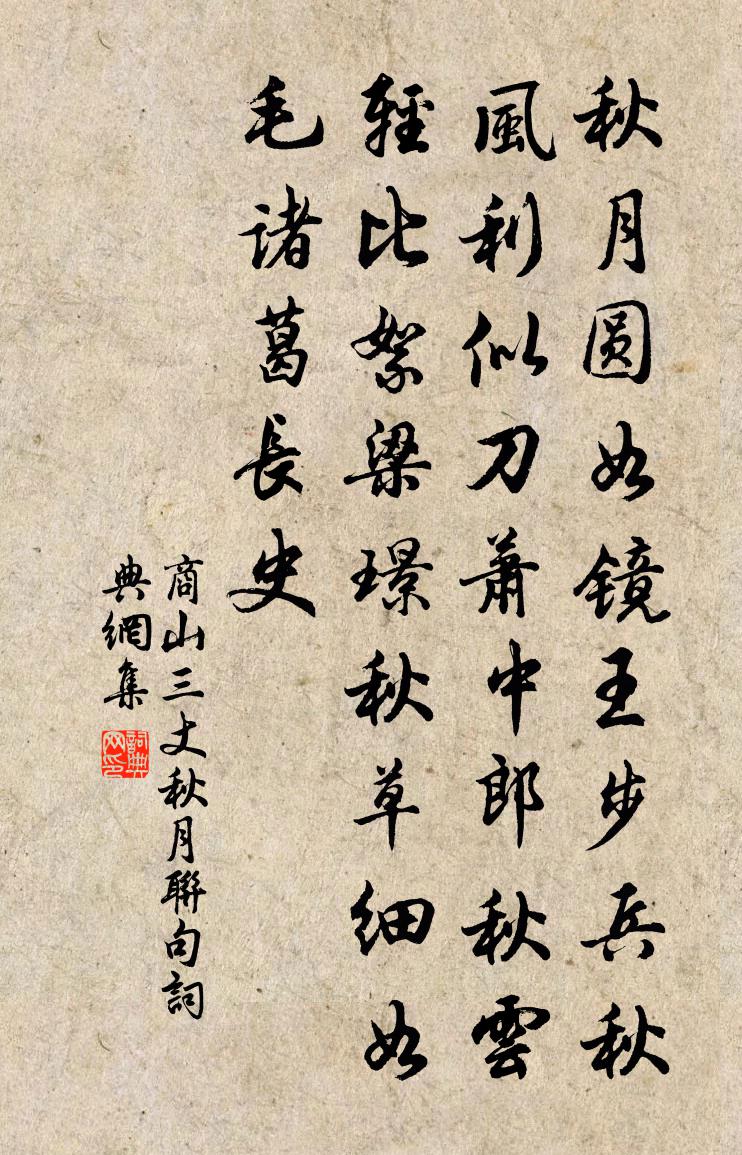 秋月圆如镜王步兵秋
風利似刀蕭中郎秋雲
輕比絮梁璟秋草細如
毛諸葛長史
商山三丈秋月聯句詞
典網集
詞典
网印